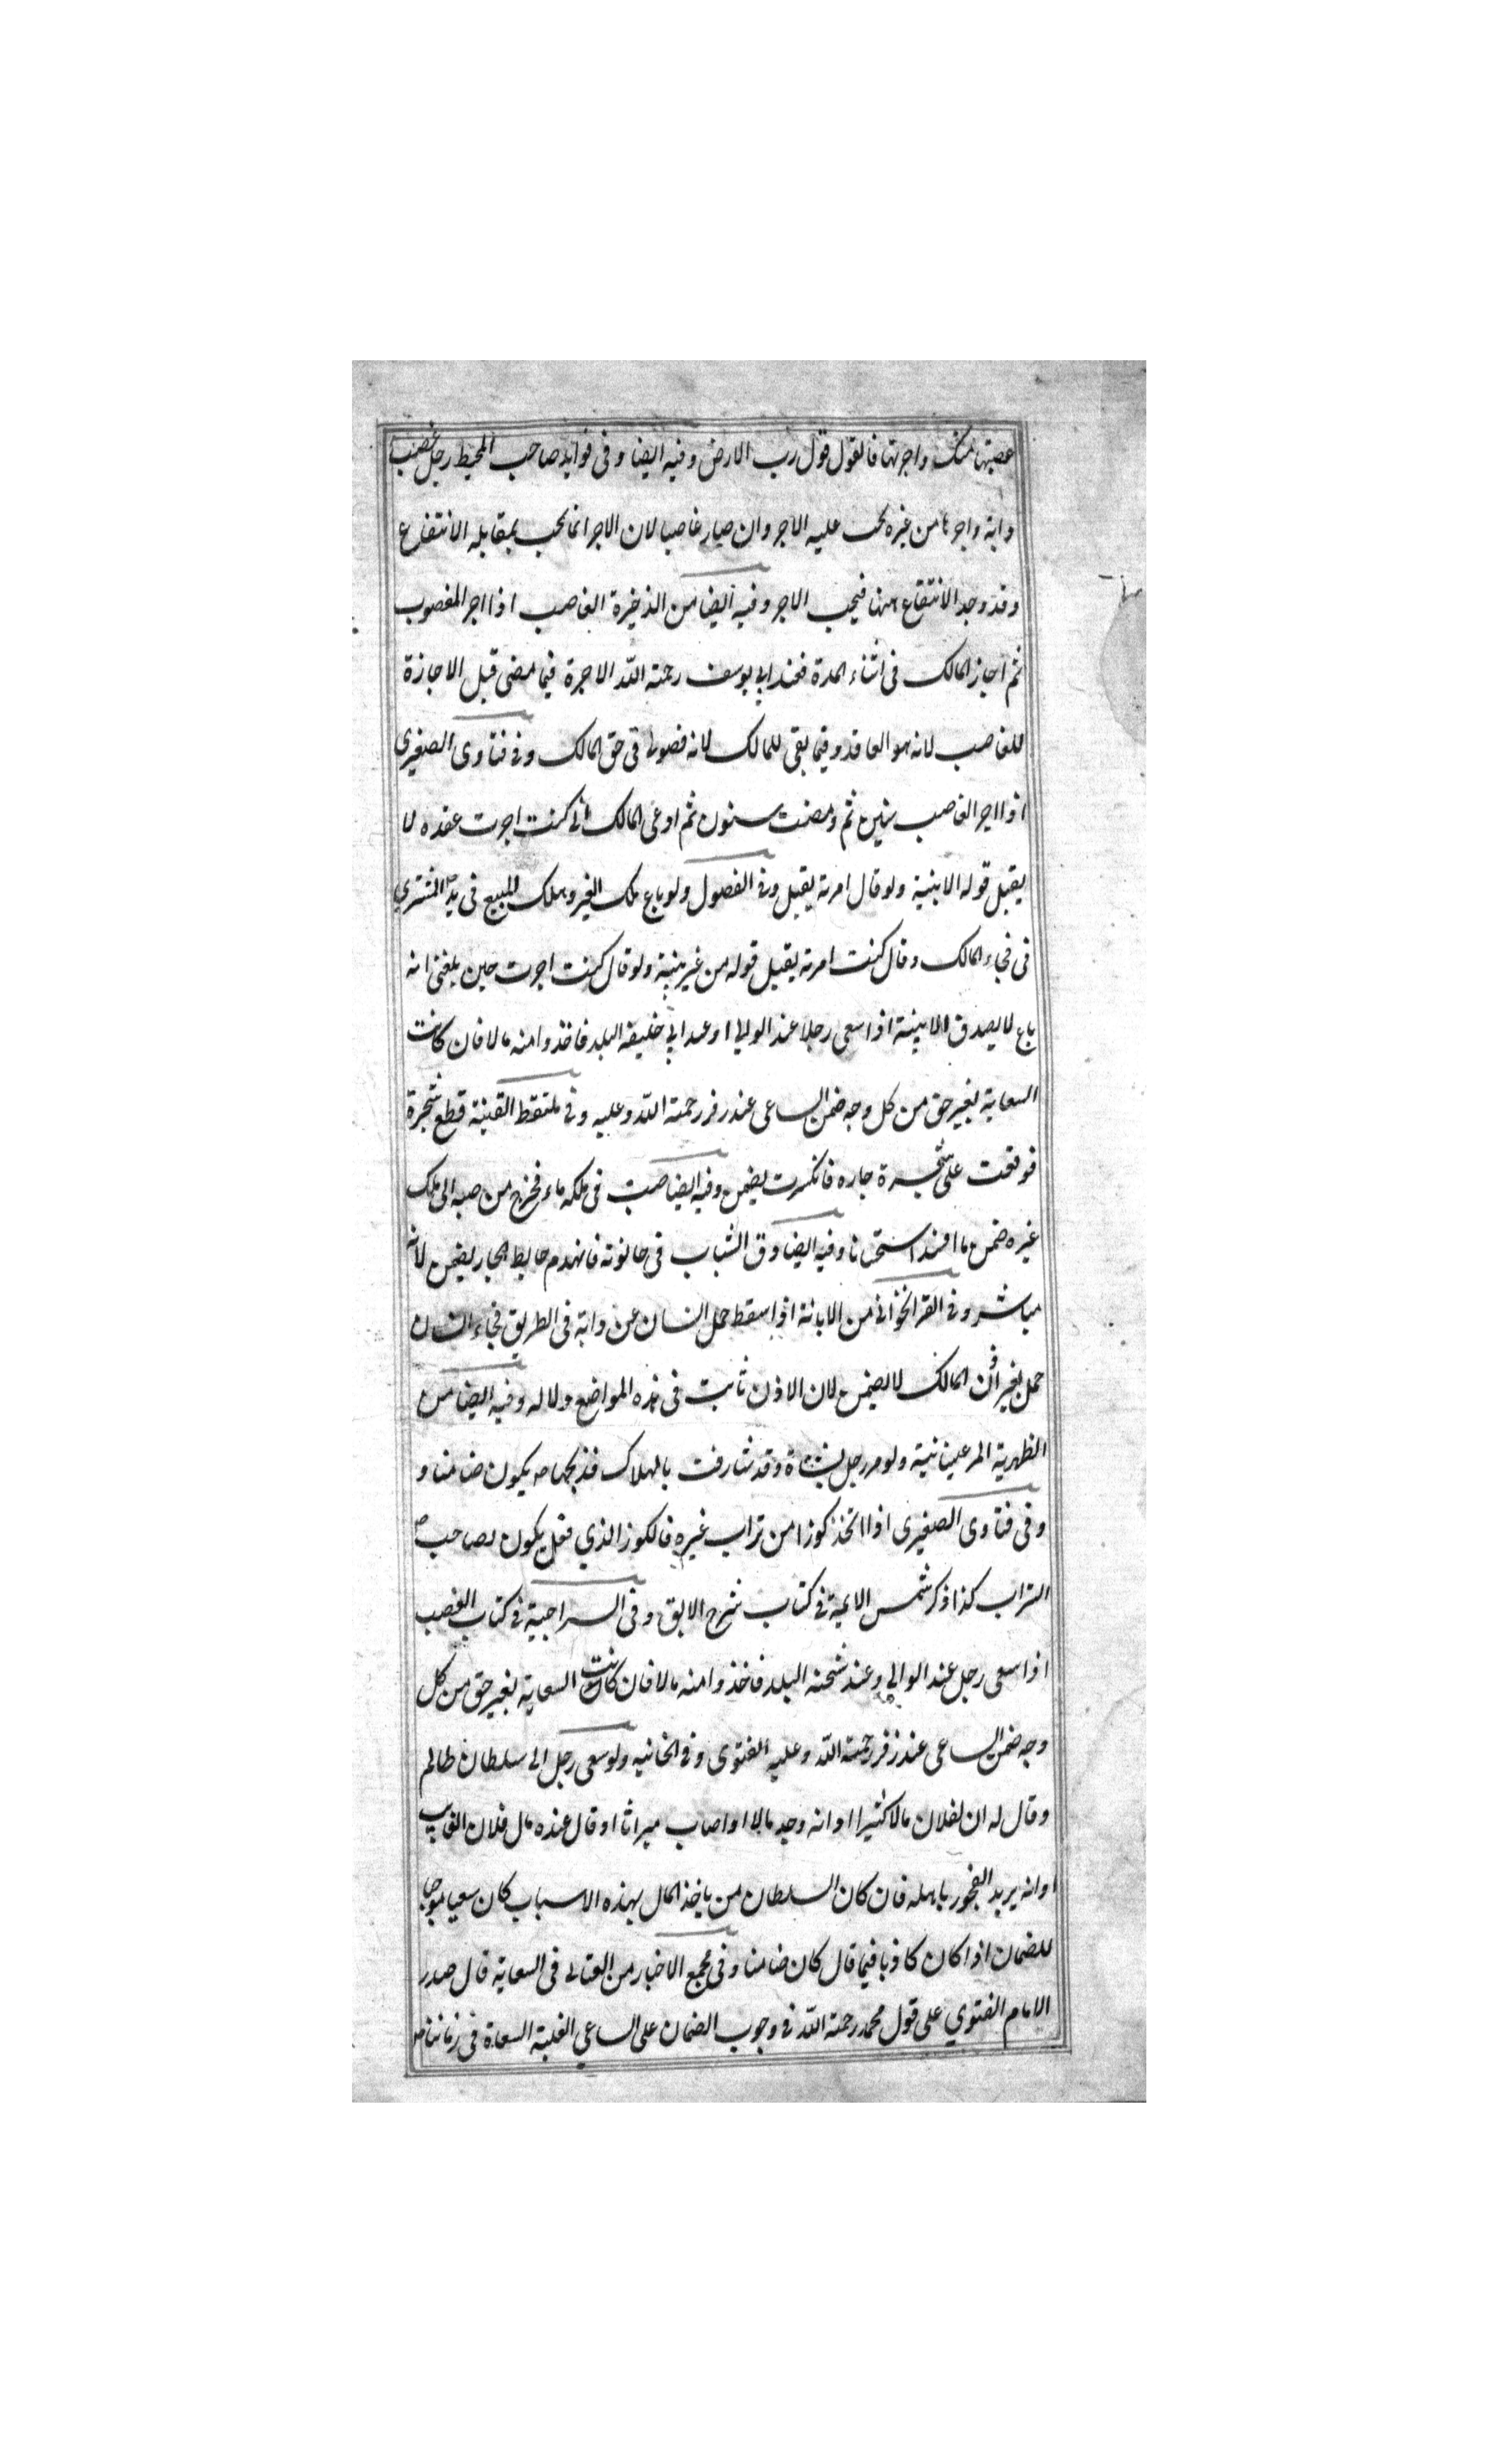 غصبتها منك واجرتها فالقول قول رب الارض وفيه ايضا وفى فوايد صاحب المحيط رجل غصب
دابة واجرها من غيره يجب عليه الاجر وان صار غاصبا لان الاجر انما يجب بمقابله الانتفاع
وقد وجد الانتفاع ههنا فيجب الاجر وفيه ايضا من الذخيرة الغاصب اذا اجر المغصوب
ثم اجاز المالك فى اثناء المدة فعند ابي يوسف رحمة الله الاجرة فيما مضى قبل الاجازة
للغاصب لانه هو العاقد وفيما بقى للمالك لانه فضولى فى حق المالك وفى فتاوى الصغيرى
اذا اجر الغاصب سنين ثم ومضت سنون ثم ادعى المالك انى كنت اجرت عقده لا
يقبل قوله الا ببينة ولو قال امرته يقبل وفى الفصول ولو باع ملك الغير وهلك المبيع فى يد المشتري
فى فجاء المالك وقال كنت امرته يقبل قوله من غير بينة ولو قال كنت اجرت حين بلغنى انه
باع لا يصدق الا ببينة اذا سعى رجلا عند الوالي او عند ابي خليفة البلد فاخذوا منه مالا فان كانت
السعاية بغير حق من كل وجه ضمن الساعى عند زفر رحمة الله وعليه وفى ملتقط القنية قطع شجرة
فوقعت على شجرة جاره فانكسرت يضمن وفيه ايضا صب فى ملكه ماء فخرج من صبه الى ملك
غيره ضمن ما افسد استحسانا وفيه ايضا دق الشباب فى حانوته فانهدم حايط الجار يضمن لانه
مباشر وفى القراخوانى من الابانة اذا سقط حمل انسان عن دابة فى الطريق فجاء انسان
حمل بغير اذن المالك لا يضمن لان الاذن ثابت فى هذه المواضع دلاله وفيه ايضا من
الظهرية المرعينانية ولو مر رجل بشاة وقد شارفت بالهلاك فذبحها يكون ضامنا و
وفى فتاوى الصغيرى اذا اتخذ كوزا من تراب غيره فالكوز الذي فعل يكون لصاحب
التراب كذا ذكر شمس الايمة فى كتاب شرح الابق وفى السراجية فى كتاب الغصب
اذا سعى رجل عند الوالي وعند شحنه البلد فاخذوا منه مالا فان كانت السعاية بغير حق من كل
وجه ضمن الساعى عند زفر رحمة الله وعليه الفتوى وفى الخانيه ولو سعى رجل الى سلطان ظالم
وقال له ان لفلان مالا كثيرا او انه وجد مالا او اصاب ميراثا او قال عنده مال فلان الغايب
او انه يريد الفجور باهله فان كان السلطان من ياخذ المال بهذه الاسباب كان سعيا موجبا
للضمان اذا كان كاذبا فيما قال كان ضامنا وفى مجمع الاخبار من العتابى فى السعاية قال صدر
الامام الفتوي على قول محمد رحمة الله فى وجوب الضمان على الساعي الغلبة السعاة فى زماننا